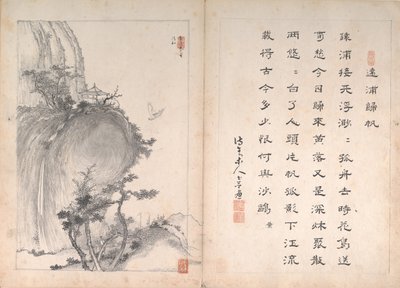 遠浦歸帆
浦接天浮渺〻孤舟去時花鳥送
可愁今日歸來黃落又是深秋聚散
兩悠〻白了人頭片帆孤影下江流
載得古今多少恨何與沙鷗